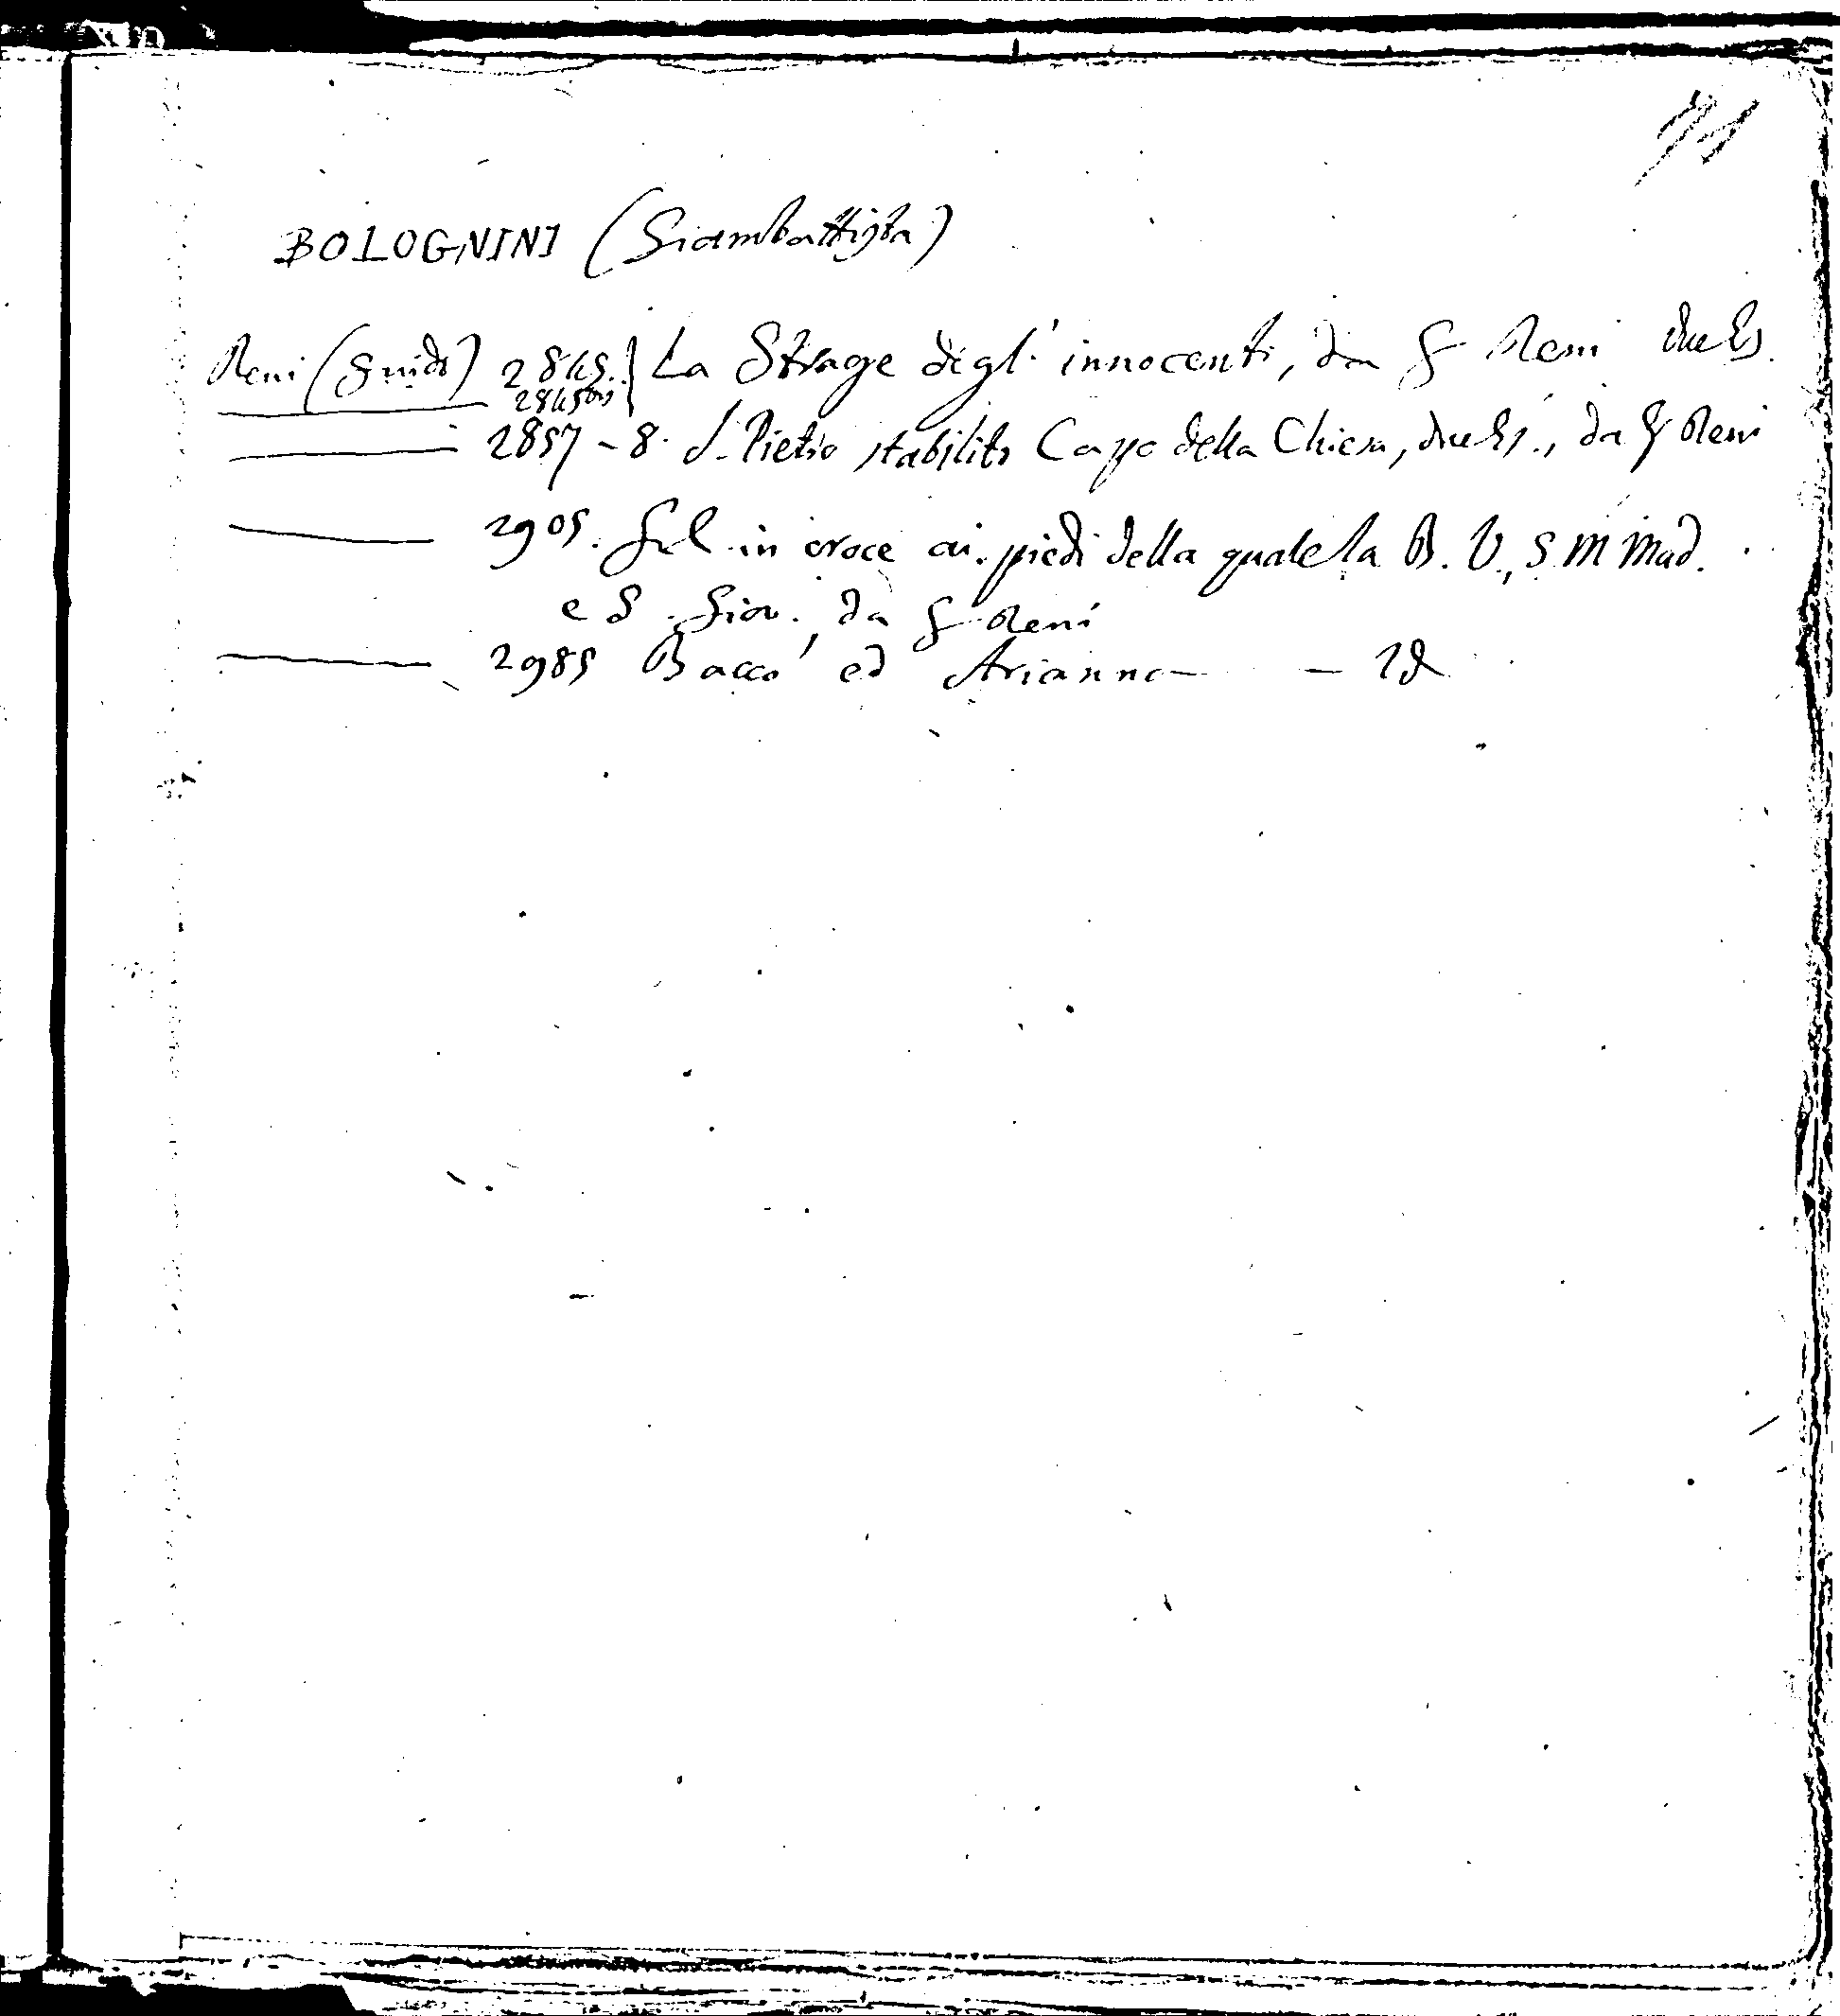 71
BOLOGNINI (Giambattista)
Reni (Guido) 2845. } La Strage degl' innocenti, da G Reni due Es.
2845bis
2857-8. S. Pietro stabilito Capo della Chiesa, due Es., da G Reni
2905. G. C. in croce ai piedi della quale la B. V., S. M Mad.
e S. Giov. da G Reni
2985 Bacco ed Arianna — Id